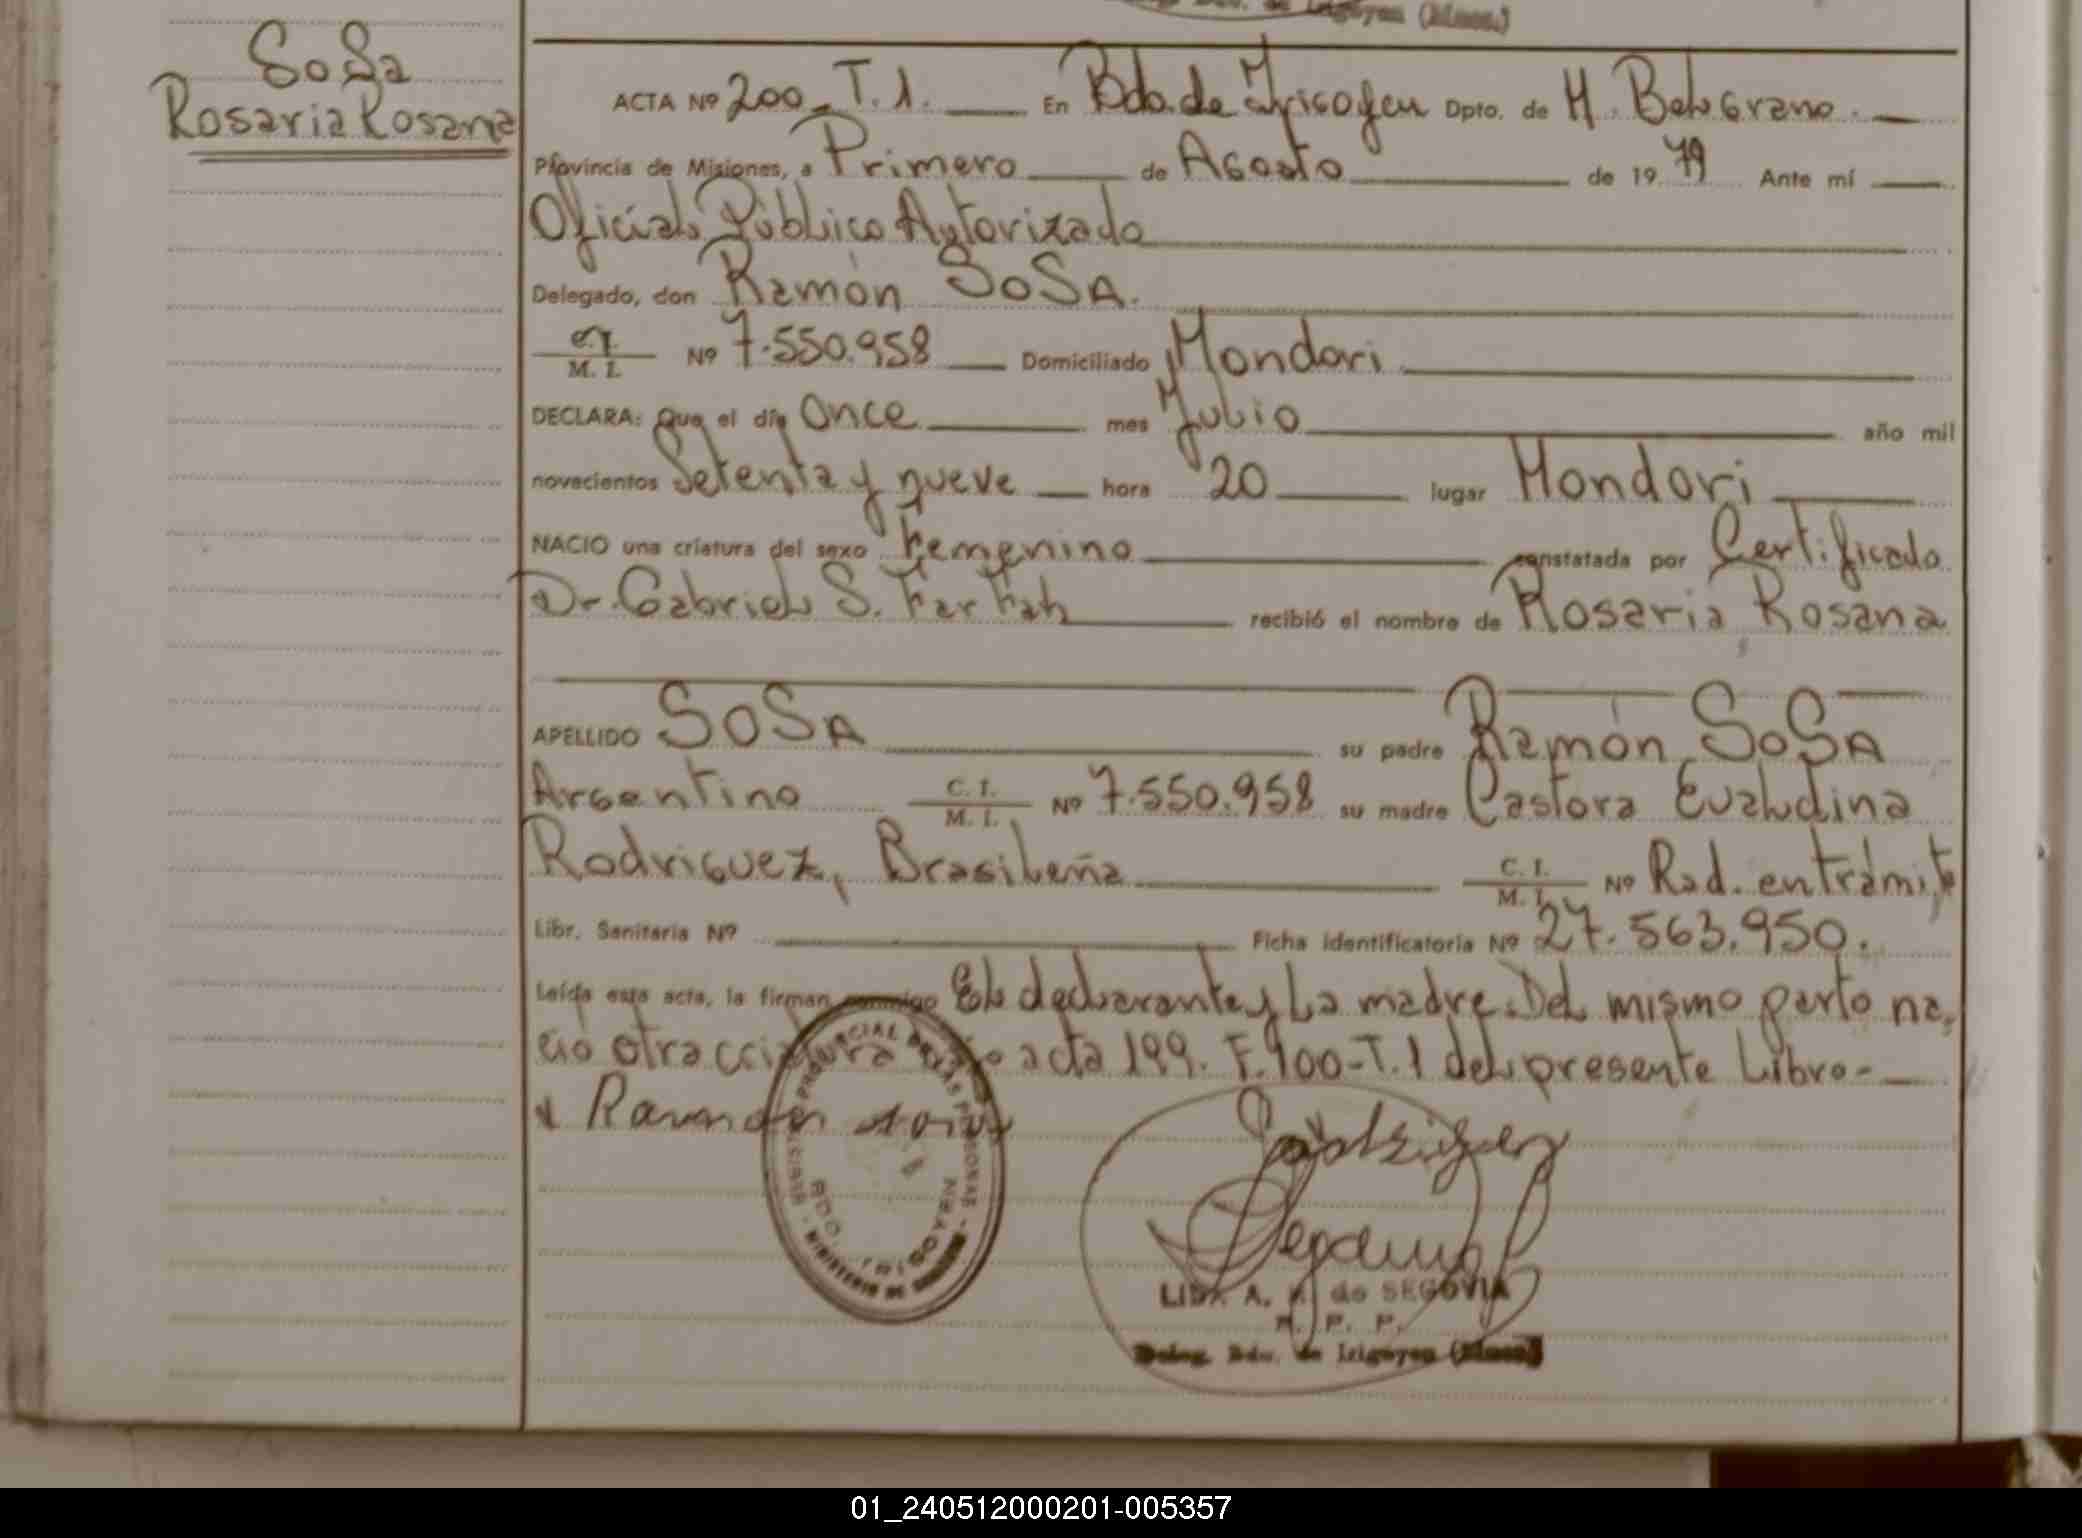 SoSa
Rosaria Rosana
Bdo. de Irigoyen (Mnes.)
ACTA Nº 200 - T. 1. En Bdo. de Yrigoyen Dpto. de M. Belgrano.
Provincia de Misiones, a Primero de Agosto de 19 79 Ante mí
Oficial Público Autorizado
Delegado, don Ramón SOSA.
C.I. / M. I. Nº 7.550.958 Domiciliado Mondori
DECLARA: Que el día Once mes Julio año mil
novecientos Setenta y nueve hora 20 lugar Mondori
NACIO una criatura del sexo Femenino constatada por Certificado
Dr. Gabriel S. Farfah recibió el nombre de Rosaria Rosana
APELLIDO SOSA su padre Ramón SOSA
Argentino C. I. / M. I. Nº 7.550.958 su madre Castora Evaludina
Rodriguez, Brasileña C. I. / M. I. Nº Rad. en trámite
Libr. Sanitaria Nº Ficha identificatoria Nº 27.563.950.
Leída esta acta, la firman conmigo El declarante y La madre. Del mismo parto na-
ció otra criatura acta 199. F. 100-T. 1 del presente Libro-
x Ramon sosa
PROVINCIAL DE LAS PERSONAS
BDO. IRIGOYEN
MINISTERIO DE GOBIERNO
LIDIA A. de SEGOVIA
R. P. P.
Deleg. Bdo. de Irigoyen (Mnes.)
01_240512000201-005357